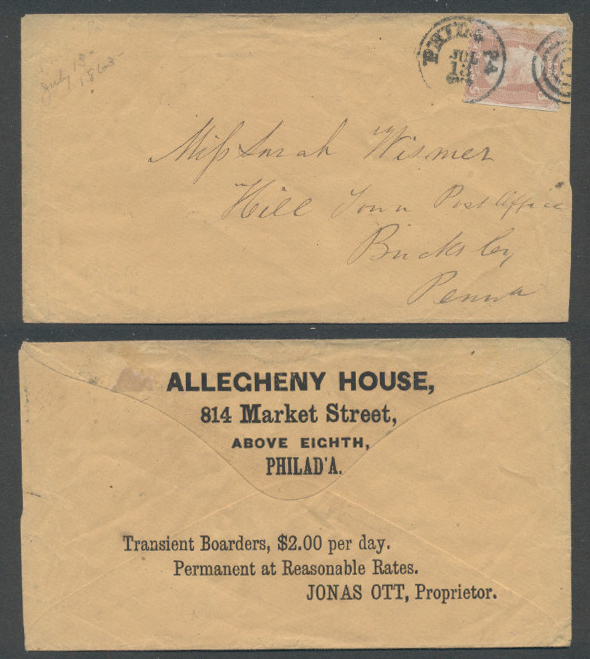 July 13
1863
PHILA PA
JUL
13
Miſs Sarah Wismer
Hill Town Post Office
Bucks Co
Penna
ALLEGHENY HOUSE,
814 Market Street,
ABOVE EIGHTH,
PHILAD'A.
Transient Boarders, $2.00 per day.
Permanent at Reasonable Rates.
JONAS OTT, Proprietor.